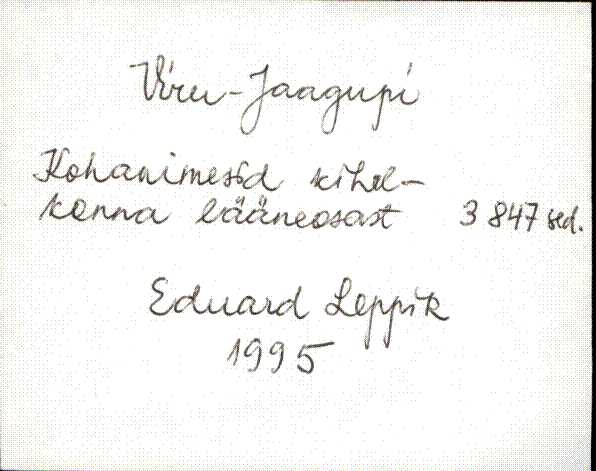 Viru-Jaagupi
Kohanimesid kihel-
konna lääneosast 3 847 sed.
Eduard Leppik
1995